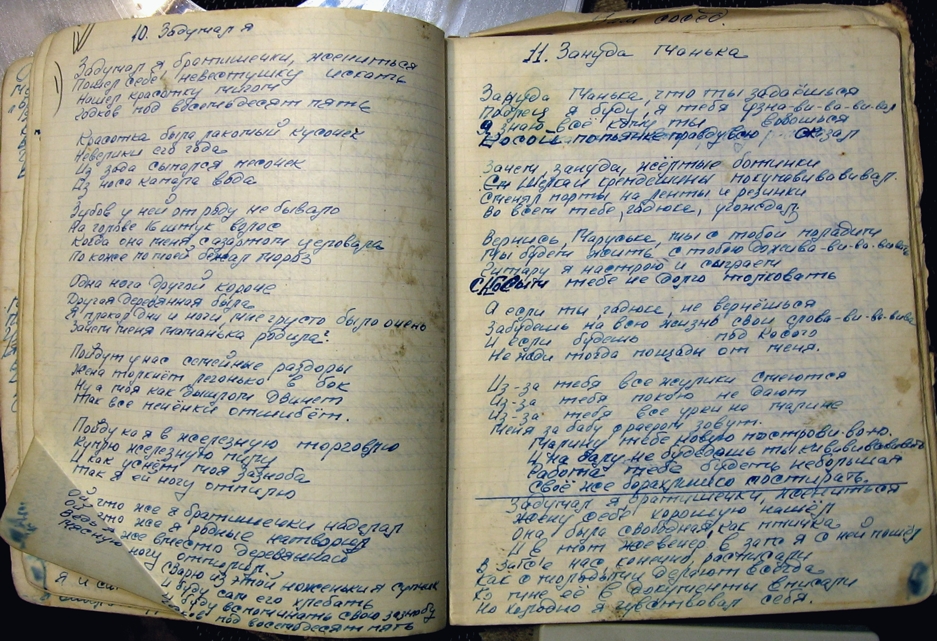 10. Задумал я
Задумал я братишечки, жениться
Пошел себе невестушку искать
Нашел красотку мигом
Годков под восемьдесят пять
Красотка была лакомый кусочек
Неверники его года
Из зада сыпался песочек
Из носа капала вода
Зубов у ней от роду не бывало
На голове 16 штук волос
Когда она меня с азартом целовала
По коже по моей бежал мороз
Одна нога другой короче
Другая деревянная была
и ночи, мне грустно было очень
Зачем меня мамонька родила?
Пойдут у нас семейные раздоры
Жена толкнёт легонько в бок
Ну а моя как дышлом двинет
Так все печёнки отшибёт.
Пойду ка я в железную торговлю
Куплю железную пилу
И как уснёт моя зазноба
Так я ей ногу отпилю
Ой что же я братишечки наделал
Ой что же я родные натворил
Ведь я же вместо деревянной
ногу отпилил.
Сварю из этой ноженьки я супчик
И буду сам его хлебать
И буду вспоминать свою зазнобу
Годков под восемьдесят пять
11. Зануда Манька
Зануда Манька, что ты задаёшься
Подлец я буду, я тебя узна-ви-ва-ви-вал
Я знаю всё кому ты
Косой правду сказал
Зачем, зануда, жёлтые ботинки
покупавивавивал.
Сменял порты на ленты и резинки
Во всем тебе, гадюка, угождал
Вернись, Маруська, мы с тобой поладим
Мы будем жить с тобою
Гитару я настрою и сыграем
тебе не долго толковать
А если ты, гадюка, не вернёшься
Забудешь на всю жизнь свои слова-ви-ва-вива
И если будешь под косого
Не жди тогда пощады от меня.
Из-за тебя все жулики смеются
Из-за тебя покою не дают
Из-за тебя все урки на малине
Меня за бабу фраером зовут.
Малину тебе новую
И на бану не будешь ты
Работка тебе будет небольшая
Своё же барахлишко постирать.
Задумал я братишечки, жениться
Жену себе хорошую нашёл
Она была свободная, как птичка
И в тот же вечер в загс я с ней пошёл
В загсе нас, конечно, расписали
Как с молодыми делают всегда
Ко мне её в документы вписали
Но холодно я чувствовал себя.